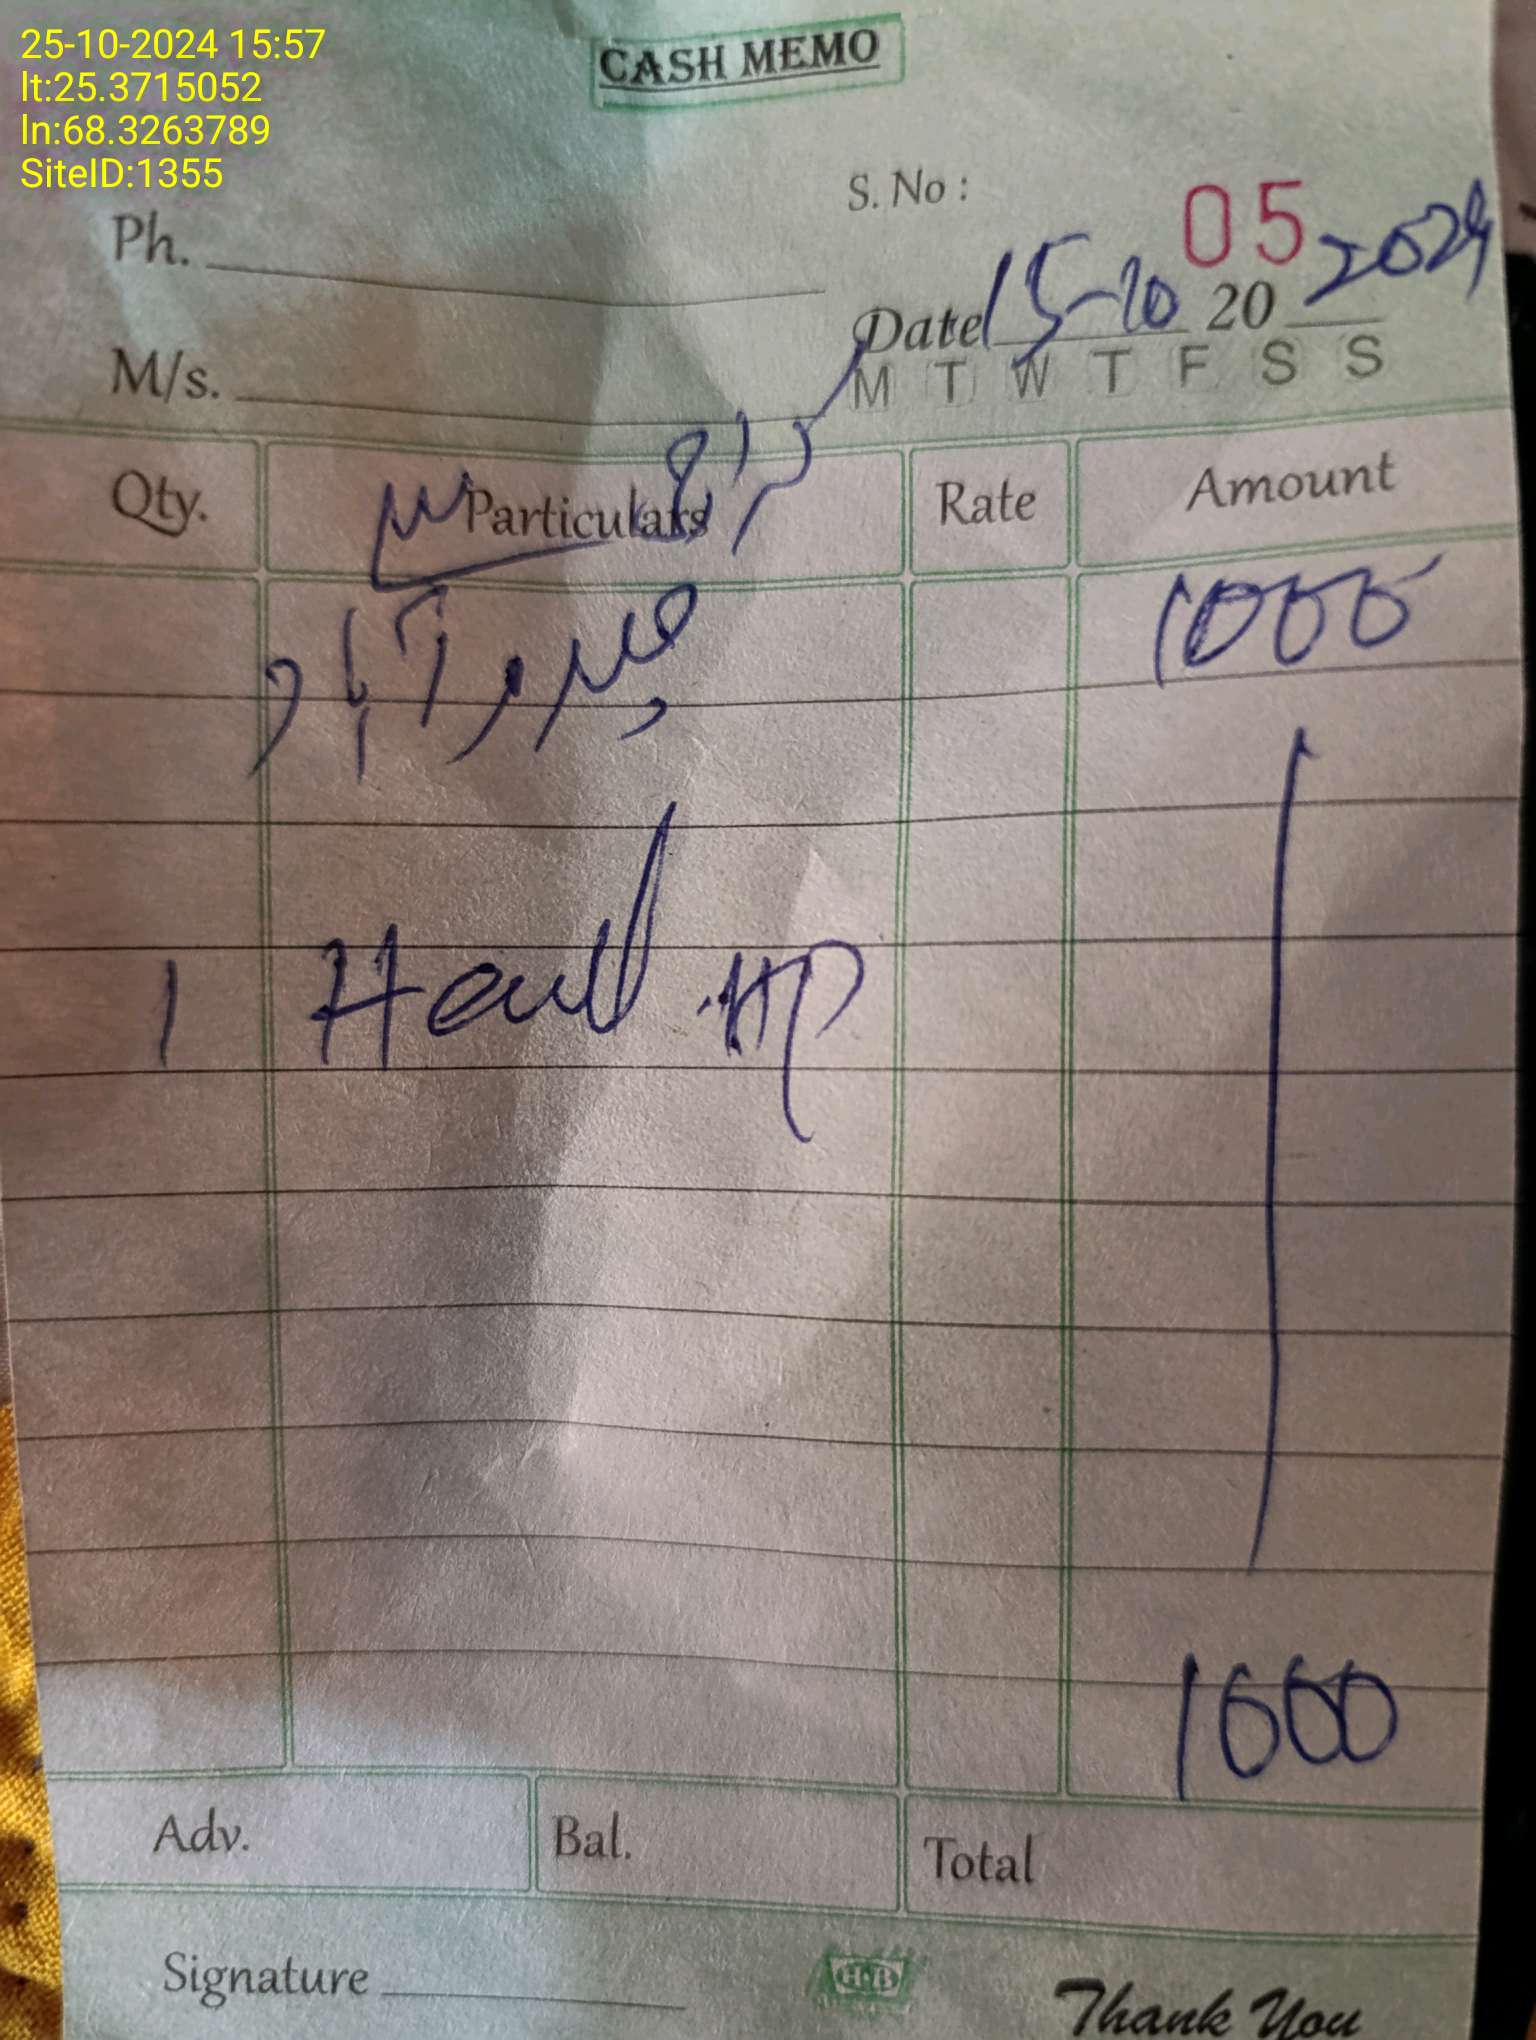 25-10-2024 15:57
lt:25.3715052
ln:68.3263789
SiteID:1355
CASH MEMO
S. No : 05
Ph.
Date 15-10 20 2024
M/s.
M T W T F S S
Qty. Particulars Rate Amount
1000
1 HP
1000
Adv. Bal. Total
Signature
H·B
Thank You